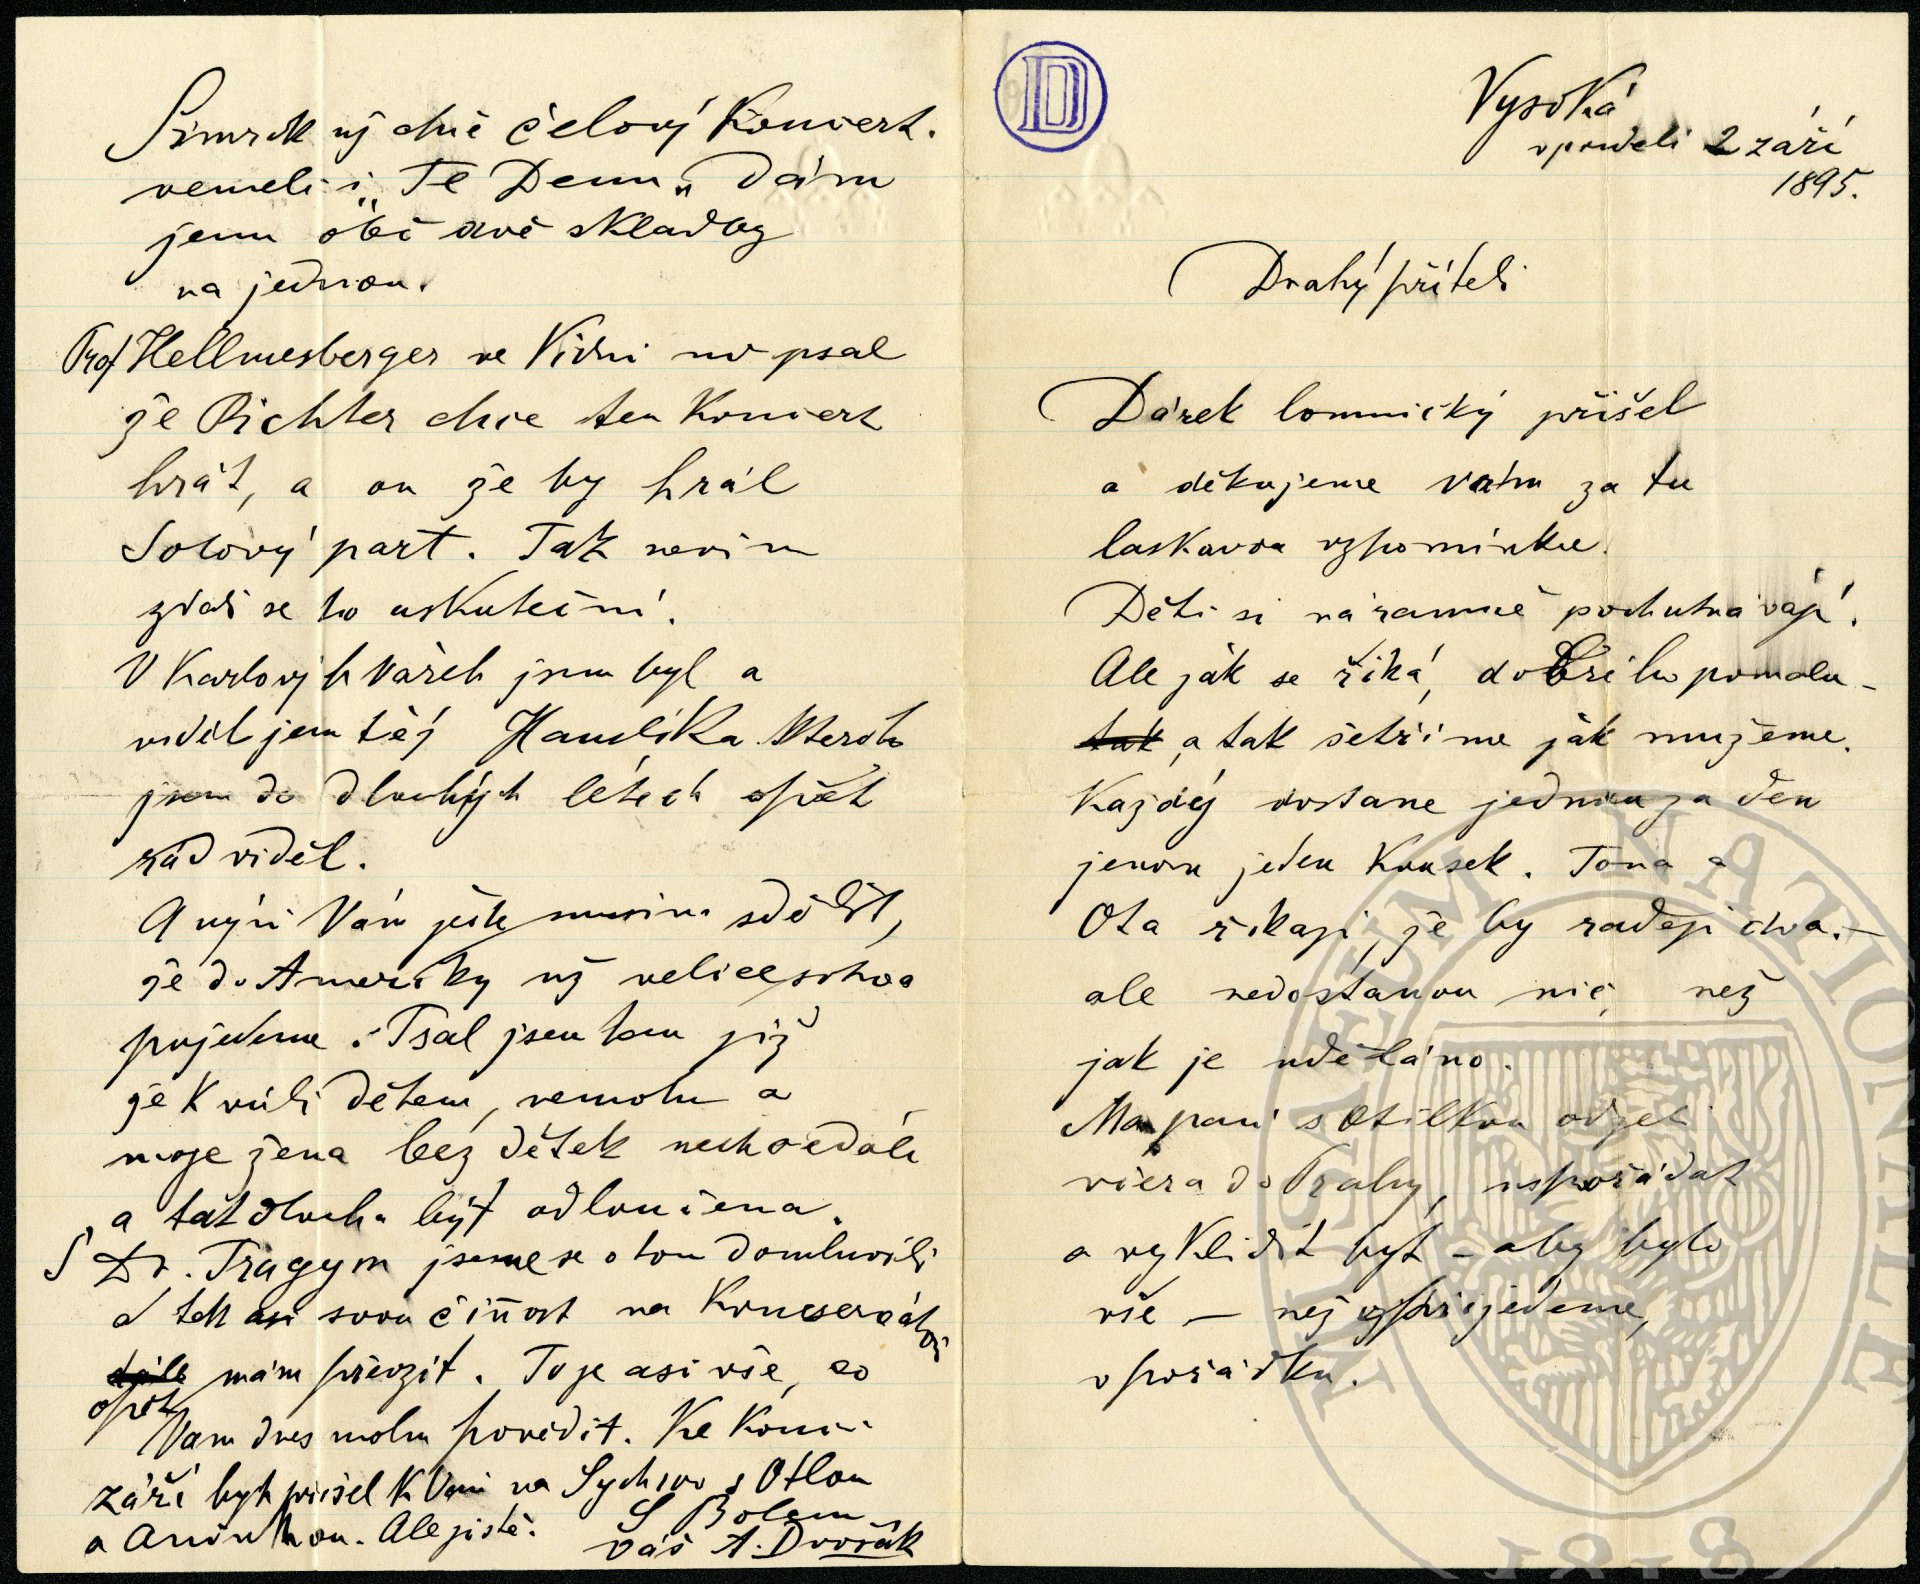 Vysoká
v pondeli 2 září
1895.
Drahý příteli
Dárek lomnický přišel
a děkujeme vám za tu
laskavou vzpomínku.
Děti si náramně pochutnávájí.
Ale ják se říká, dobrého pomalu –
tak, a tak šetříme ják mužeme.
Každý dostane jednou za den
jenom jeden Kousek. Tona a
Ota říkaji, že by raději dva. –
ale nedostanou nic, než
jak je uděláno.
Ma pani s Otilkou odjeli
včera do Prahy, uspořádat
a vyklidit byt – aby bylo
vše – než přijedeme,
v pořádku.
Simrok už chce čelový Koncert.
nemeli i „Te Deum„ Dám
jemu obě dvě skladby
na jednou.
Prof Hellmesberger ve Vídni mě psal
že Richter chce ten Koncert
hrát, a on že by hrál
Solový part. Tak nevim
zdali se to uskuteční.
V Karlových Vařech jsem byl a
viděl jsem též Hanslíka kteroho
jsem po dlouhých létech opět
rád viděl.
A nyní Vám ještě musim sdělit,
že do Ameriky už velice sotva
pujedeme. Psal jsem tam již
že k vůli dětem, nemohu a
moje žena bez dětek nechce dále
a tát dlouho být odloučena.
S Dr. Tragym jsme se o tom domluvili
a tak asi svou činnost na Konservátoři
opět mám převzít. Toje asi vše, co
Vam dnes mohu povědit. Ke Konci
záři bych přišel k Vám na Sychrov s Otlou
a Aničkou. Ale jistě.
S Bohem
Váš A. Dvořák
D
MUSAEUM NATIONALE
1818